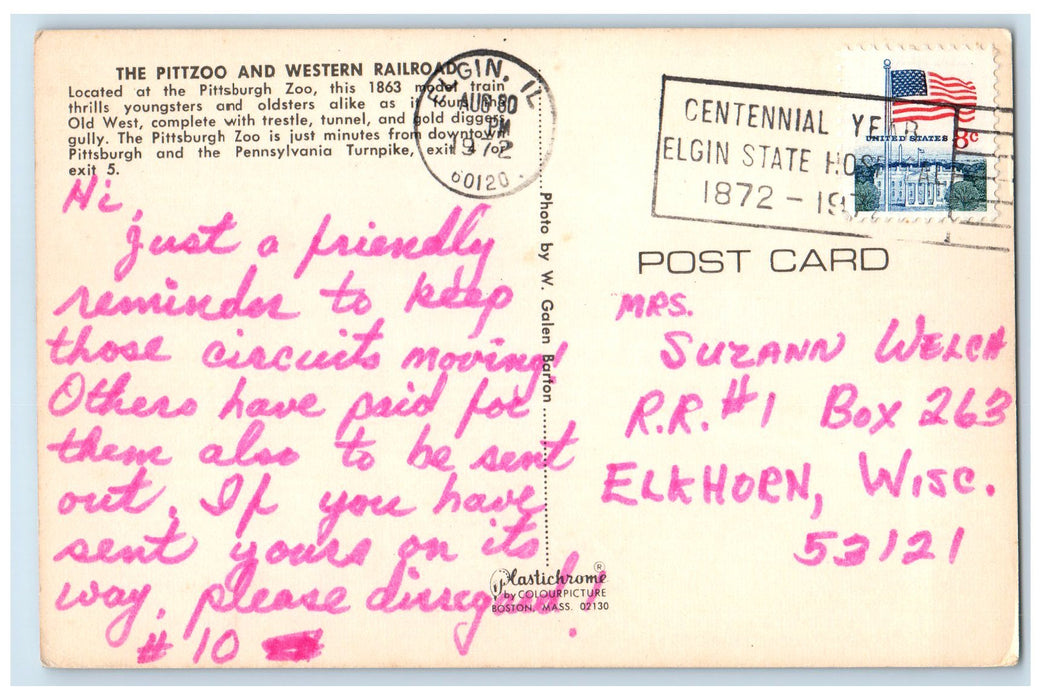 THE PITTZOO AND WESTERN RAILROAD
Located at the Pittsburgh Zoo, this 1863 model train
thrills youngsters and oldsters alike as it tours the
Old West, complete with trestle, tunnel, and gold diggers
gully. The Pittsburgh Zoo is just minutes from downtown
Pittsburgh and the Pennsylvania Turnpike, exit 4 or
exit 5.
ELGIN, IL
AUG 30
PM
1972
60120
CENTENNIAL YEAR
ELGIN STATE HOSPITAL
1872 – 1972
UNITED STATES 8c
Hi,
just a friendly
reminder to keep
those circuits moving!
Others have paid for
them also to be sent
out. If you have
sent yours on its
way, please disregard!
# 10
Photo by W. Galen Barton
Plastichrome®
by COLOURPICTURE
BOSTON, MASS. 02130
POST CARD
MRS.
SUZANN WELCH
R.R. #1 BOX 263
ELKHORN, WISC.
53121